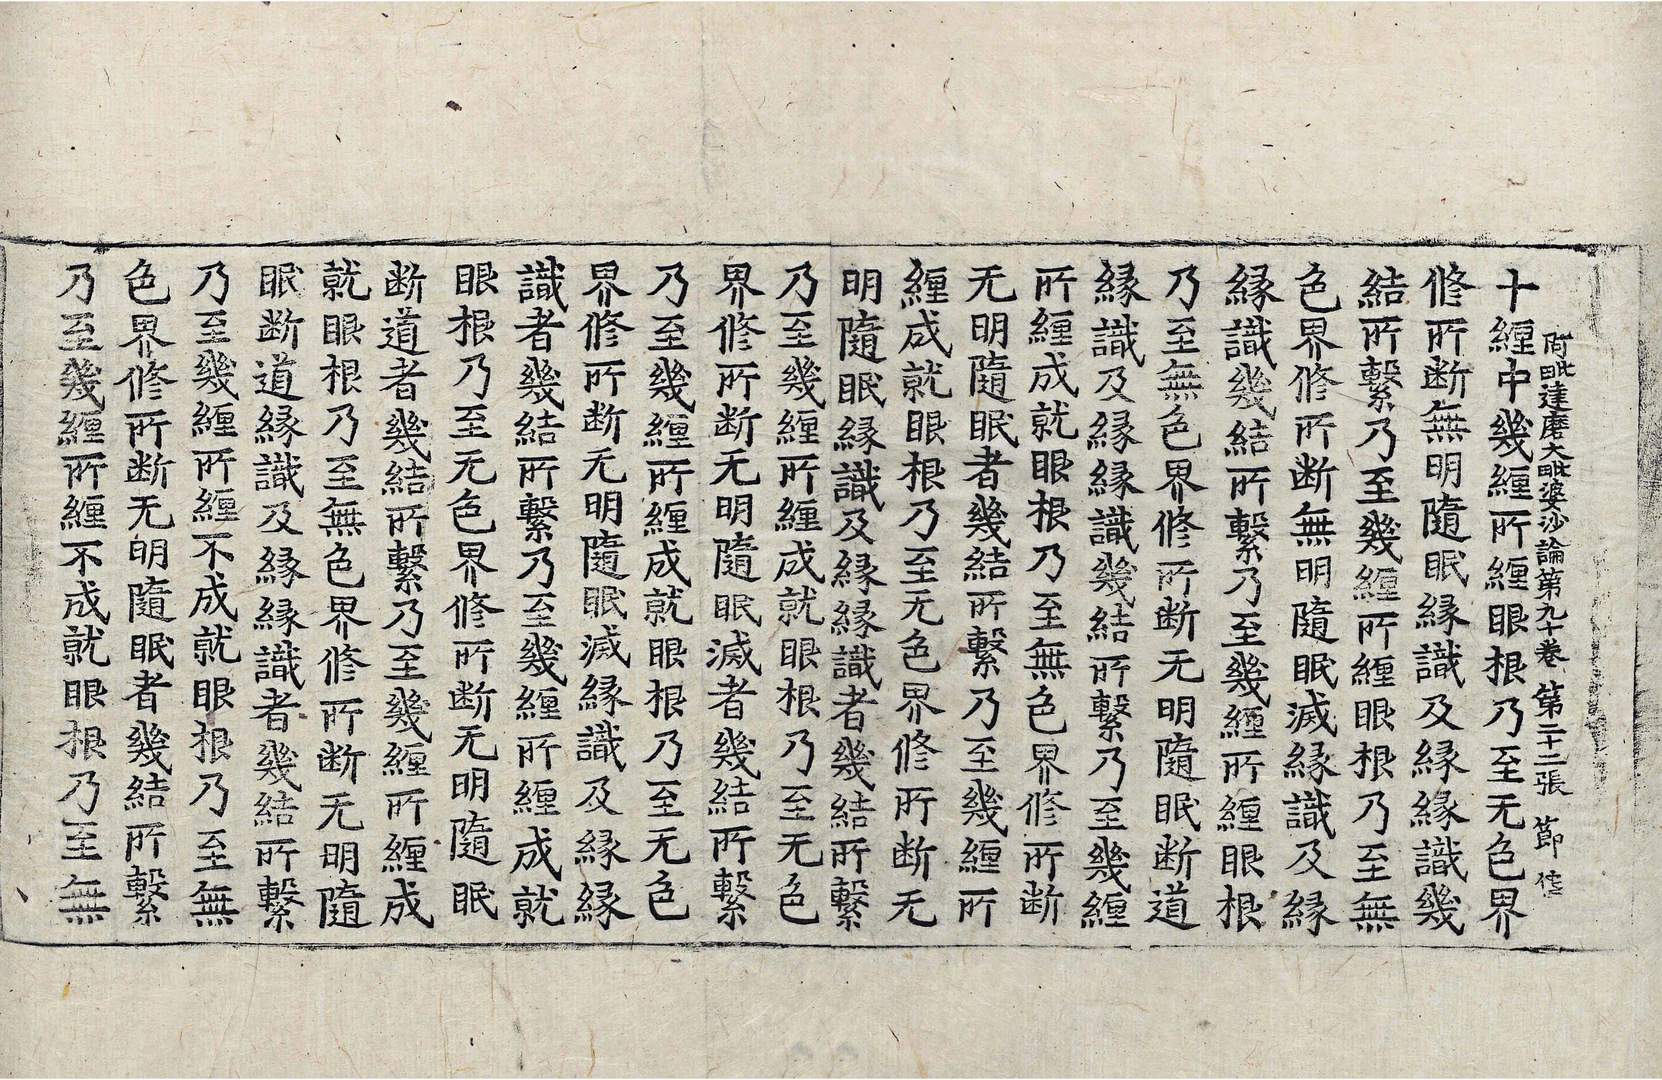 阿毗達磨大毗婆沙論第九十卷 第二十二張 節
十纏中幾纏所纏眼根乃至无色界
修所断無明隨眠縁識及縁縁識幾
結所繫乃至幾纏所纏眼根乃至無
色界修所断無明隨眠滅縁識及縁
縁識幾結所繫乃至幾纏所纏眼根
乃至無色界修所断无明隨眠断道
縁識及縁縁識幾結所繫乃至幾纏
所纏成就眼根乃至無色界修所断
无明隨眠者幾結所繫乃至幾纏所
纏成就眼根乃至无色界修所断无
明隨眠縁識及縁縁識者幾結所繫
乃至幾纏所纏成就眼根乃至无色
界修所断无明隨眠滅者幾結所繫
乃至幾纏所纏成就眼根乃至无色
界修所断无明隨眠滅縁識及縁縁
識者幾結所繫乃至幾纏所纏成就
眼根乃至无色界修所断无明隨眠
断道者幾結所繫乃至幾纏所纏成
就眼根乃至無色界修所断无明隨
眠断道縁識及縁縁識者幾結所繫
乃至幾纏所纏不成就眼根乃至無
色界修所断无明隨眠者幾結所繫
乃至幾纏所纏不成就眼根乃至無